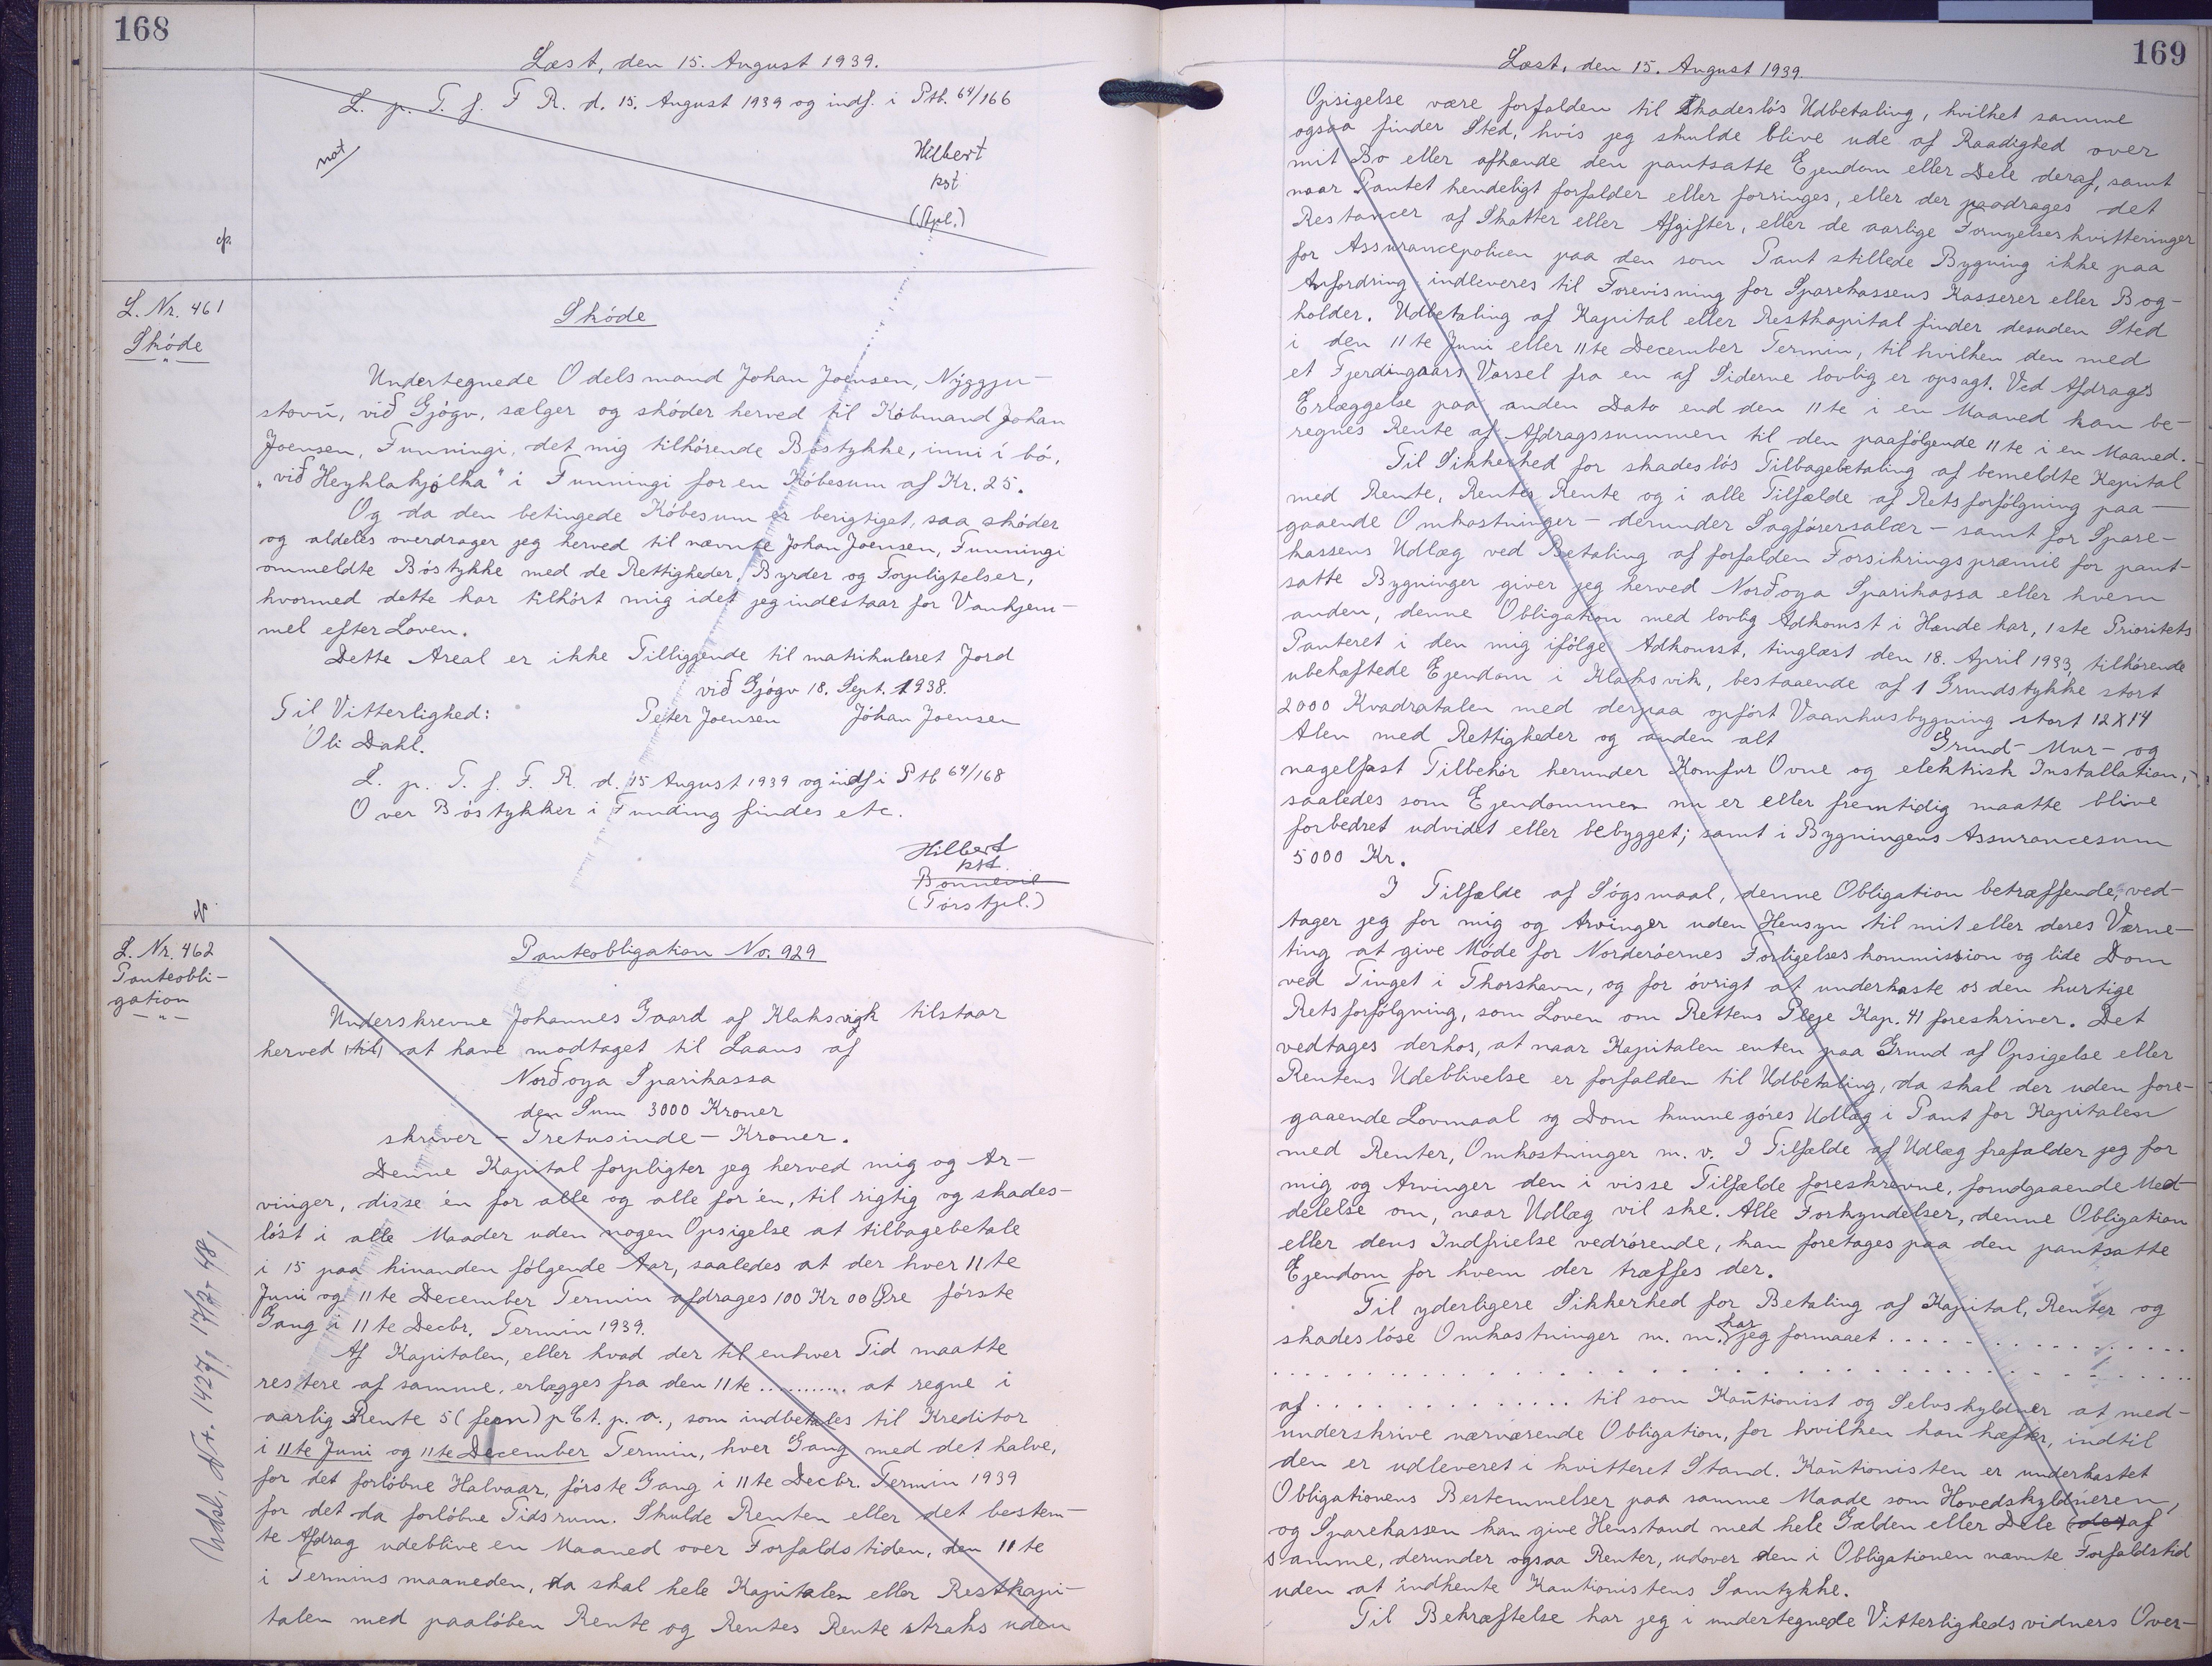 168
Læst, den 15. August 1939.
L. p. T. f. F R. d. 15. August 1939 og indf. i Ptb. 64/166
not
Hilbert
kst
(Stpl.)
cf.
L. Nr. 461
Skóde
Skóde
Undertegnede Odelsmand Johan Joensen, Nýggju-
stovu, við Gjógv, sælger og skóder herved til Kóbmand Johan
Joensen, Funningi, det mig tilhórende Bóstykke, inni í bó,
"við Heyklakjólka" i Funningi for en Kóbesum af Kr. 25.
Og da den betingede Kóbesum er berigtiget, saa skóder
og aldeles overdrager jeg herved til nævnte Johan Joensen, Funningi
ommeldte Bóstykke med de Rettigheder, Byrder og Forpligtelser,
hvormed dette har tilhórt mig idet jeg indestaar for Vanhjem-
mel efter Loven.
Dette Areal er ikke Tilliggende til matrikuleret Jord
við Gjógv 18. Sept. 1938.
Til Vitterlighed: Peter Joensen Jóhan Joensen
Óli Dahl.
L. p. T. f. F. R. d. 15 August 1939 og indf i Ptb 64/168
Over Bóstykker i Funding findes etc.
Hilbert
kst.
Bonnevie
(Tórstpl.)
cf.
L. Nr. 462
Panteobli-
gation
Panteobligation No. 929
Underskrevne Johannes Gaard af Klaksvigk tilstaar
herved (til) at have modtaget til Laans af
Norðoya Sparikassa
den Sum 3000 Kroner
skriver - Tretusinde - Kroner.
Denne Kapital forpligter jeg herved mig og Ar-
vinger, disse én for alle og alle for én, til rigtig og skades-
lóst i alle Maader uden nogen Opsigelse at tilbagebetale
i 15 paa hinanden fólgende Aar, saaledes at der hver 11te
Juni og 11te December Termin afdrages 100 Kr 00 Øre fórste
Gang i 11te Decbr. Termin 1939.
Af Kapitalen, eller hvad der til enhver Tid maatte
restere af samme, erlægges fra den 11te ............ at regne i
aarlig Rente 5 (fem) p Ct. p. a., som indbetales til Kreditor
i 11te Juni og 11te December Termin, hver Gang med det halve,
for det forlóbne Halvaar, fórste Gang i 11te Decbr. Termin 1939
for det da forlóbne Tidsrum. Skulde Renten eller det bestem-
te Afdrag udeblive en Maaned over Forfaldstiden, den 11te
i Terminsmaaneden, da skal hele Kapitalen eller Restkapi-
talen med paalóben Rente og Rentes Rente straks uden
Udsl, Nr. 1427, 17/2 48,
169
Læst, den 15. August 1939.
Opsigelse være forfalden til Skadeslós Udbetaling, hvilket samme
ogsaa finder Sted, hvis jeg skulde blive ude af Raadighed over
mit Bo eller afhænde den pantsatte Ejendom eller Dele deraf, samt
naar Pantet hendeligt forfalder eller forringes, eller der paadrages det
Restancer af Skatter eller Afgifter, eller de aarlige Fornyelseskvitteringer
for Assurancepolicen paa den som Pant stillede Bygning ikke paa
Anfordring indleveres til Forevisning for Sparekassens Kasserer eller Bog-
holder. Udbetaling af Kapital eller Restkapital finder desuden Sted
i den 11te Juni eller 11te December Termin, til hvilken den med
et Fjerdingaars Varsel fra en af Siderne lovlig er opsagt. Ved Afdrags
Erlæggelse paa anden Dato end den 11te i en Maaned kan be-
regnes Rente af Afdragssummen til den paafólgende 11te i en Maaned.
Til Sikkerhed for skadeslós Tilbagebetaling af bemeldte Kapital
med Rente, Rentes Rente og i alle Tilfælde af Retsforfólgning paa-
gaaende Omkostninger - derunder Sagfórersalær - samt for Spare-
kassens Udlæg ved Betaling af forfalden Forsikringspræmie for pant-
satte Bygninger giver jeg herved Norðoya Sparikassa eller hvem
anden, denne Obligation med lovlig Adkomst i Hænde har, 1ste Prioritets
Panteret i den mig ifólge Adkomst, tinglæst den 18. April 1933, tilhórende
ubehæftede Ejendom i Klaksvik, bestaaende af 1 Grundstykke stort
2000 Kvadratalen med derpaa opfórt Vaanhusbygning stort 12 X 14
Alen med Rettigheder og anden alt Grund- Mur- og
nagelfast Tilbehór herunder Komfur Ovne og elektrisk Installation,
saaledes som Ejendommen nu er eller fremtidig maatte blive
forbedret udvidet eller bebygget; samt i Bygningens Assurancesum
5000 Kr.
I Tilfælde af Sógsmaal, denne Obligation betræffende, ved-
tager jeg for mig og Arvinger uden Hensyn til mit eller deres Værne-
ting at give Móde for Norderóernes Forligelseskommission og lide Dom
ved Tinget i Thorshavn, og for óvrigt at underkaste os den hurtige
Retsforfólgning, som Loven om Rettens Pleje Kap. 41 foreskriver. Det
vedtages derhos, at naar Kapitalen enten paa Grund af Opsigelse eller
Rentens Udeblivelse er forfalden til Udbetaling, da skal der uden fore-
gaaende Lovmaal og Dom kunne góres Udlæg i Pant for Kapitalen
med Renter, Omkostninger m. v. I Tilfælde af Udlæg frafalder jeg for
mig og Arvinger den i visse Tilfælde foreskrevne, forudgaaende Med-
delelse om, naar Udlæg vil ske. Alle Forkyndelser, denne Obligation
eller dens Indfrielse vedrórende, kan foretages paa den pantsatte
Ejendom for hvem der træffes der.
Til yderligere Sikkerhed for Betaling af Kapital, Renter og
skadeslóse Omkostninger m. m. har jeg formaaet . . . . . . . . . . . . . . . .
. . . . . . . . . . . . . . . . . . . . . . . . . . . . . . . .
af . . . . . . . . . . . . . . til som Kautionist og Selvskyldner at med-
underskrive nærværende Obligation, for hvilken han hæfter, indtil
den er udleveret i kvitteret Stand. Kautionisten er underkastet
Obligationens Bestemmelser paa samme Maade som Hovedskyldneren,
og Sparekassen kan give Henstand med hele Gælden eller Dele (der) af
samme, derunder ogsaa Renter, udover den i Obligationen nævnte Forfaldstid
uden at indhente Kautionistens Samtykke.
Til Bekræftelse har jeg i undertegnede Vitterlighedsvidners Over-